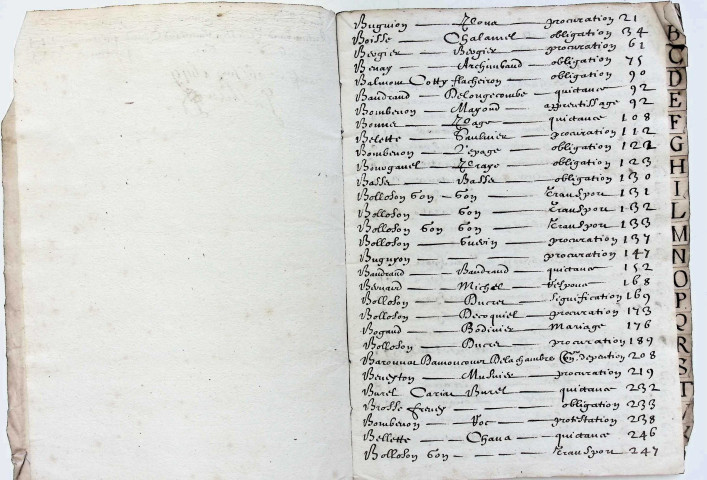 Buguion — Roua — procuration 21
Boisse — Chalamel — obligation 34
Bergier — Bergier — procuration 61
Benay — Archimbaud — obligation 75
Balmont Cotty flacheiron — obligation 90
Baudrand — Delongecombe — quictance 92
Bombenon — Magond — apprentissage 92
Bonnet — Rage — quictance 108
Belette — Saulnier — procuration 112
Bombenon — Lepage — obligation 122
Bourganel — Xraye — obligation 123
Basse — Basse — obligation 130
Bolloson Gon — Gon — Transport 131
Bolloson — Gon — Transport 132
Bolloson Gon Gon — Transport 133
Bolloson — Guerin — procuration 137
Buguyon — procuration 147
Baudrand — Baudrand — quictance 152
Bernard — Michel — Response 168
Bolloson — Ducret — signification 169
Bolloson — Decoquiel — procuration 173
Bogaud — Bodinier — Mariage 176
Bolloson — Ducret — procuration 189
Damoncourt Delachambre 208
Beneyton — Musnier — procuration 219
Burel Carian Burel — quictance 232
Brosse freney — obligation 233
Bombenon — Voc — protestation 238
Bellette — Chana — quictance 246
Bolloson Gon — Transport 247
B
C
D
E
F
G
H
I
L
M
N
O
P
Q
R
S
T
V